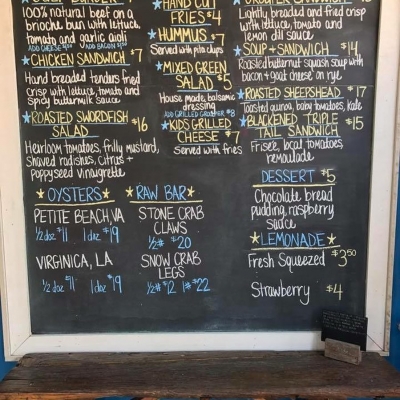 100% natural beef on a
brioche bun with lettuce,
tomato and garlic aioli
ADD CHEESE ADD BACON
CHICKEN SANDWICH 7
Hand breaded tenders fried
crisp with lettuce, tomato and
spicy buttermilk sauce
ROASTED SWORDFISH
SALAD $16
Heirloom tomatoes, frilly mustard,
shaved radishes, citrus +
poppyseed vinaigrette
HAND CUT
FRIES $4
HUMMUS $7
Served with pita chips
MIXED GREEN
SALAD $5
House made balsamic
dressing
ADD GRILLED GROUPER $8
KIDS GRILLED
CHEESE $7
Served with fries
SANDWICH
Lightly breaded and fried crisp
with lettuce, tomato and
lemon dill sauce
SOUP + SANDWICH $14
Roasted butternut squash soup with
bacon + goat cheese, on rye
ROASTED SHEEPSHEAD $17
Toasted quinoa, baby tomatoes, kale
BLACKENED TRIPLE
TAIL SANDWICH $15
Frisee, local tomatoes,
remoulade
OYSTERS
PETITE BEACH, VA
1/2 doz $11 1 doz $19
VIRGINICA, LA
1/2 doz $11 1 doz $19
RAW BAR
STONE CRAB
CLAWS
1/2# $20
SNOW CRAB
LEGS
1/2# $12 1# $22
DESSERT $5
Chocolate bread
pudding, raspberry
sauce
LEMONADE
Fresh Squeezed $3.50
Strawberry $4